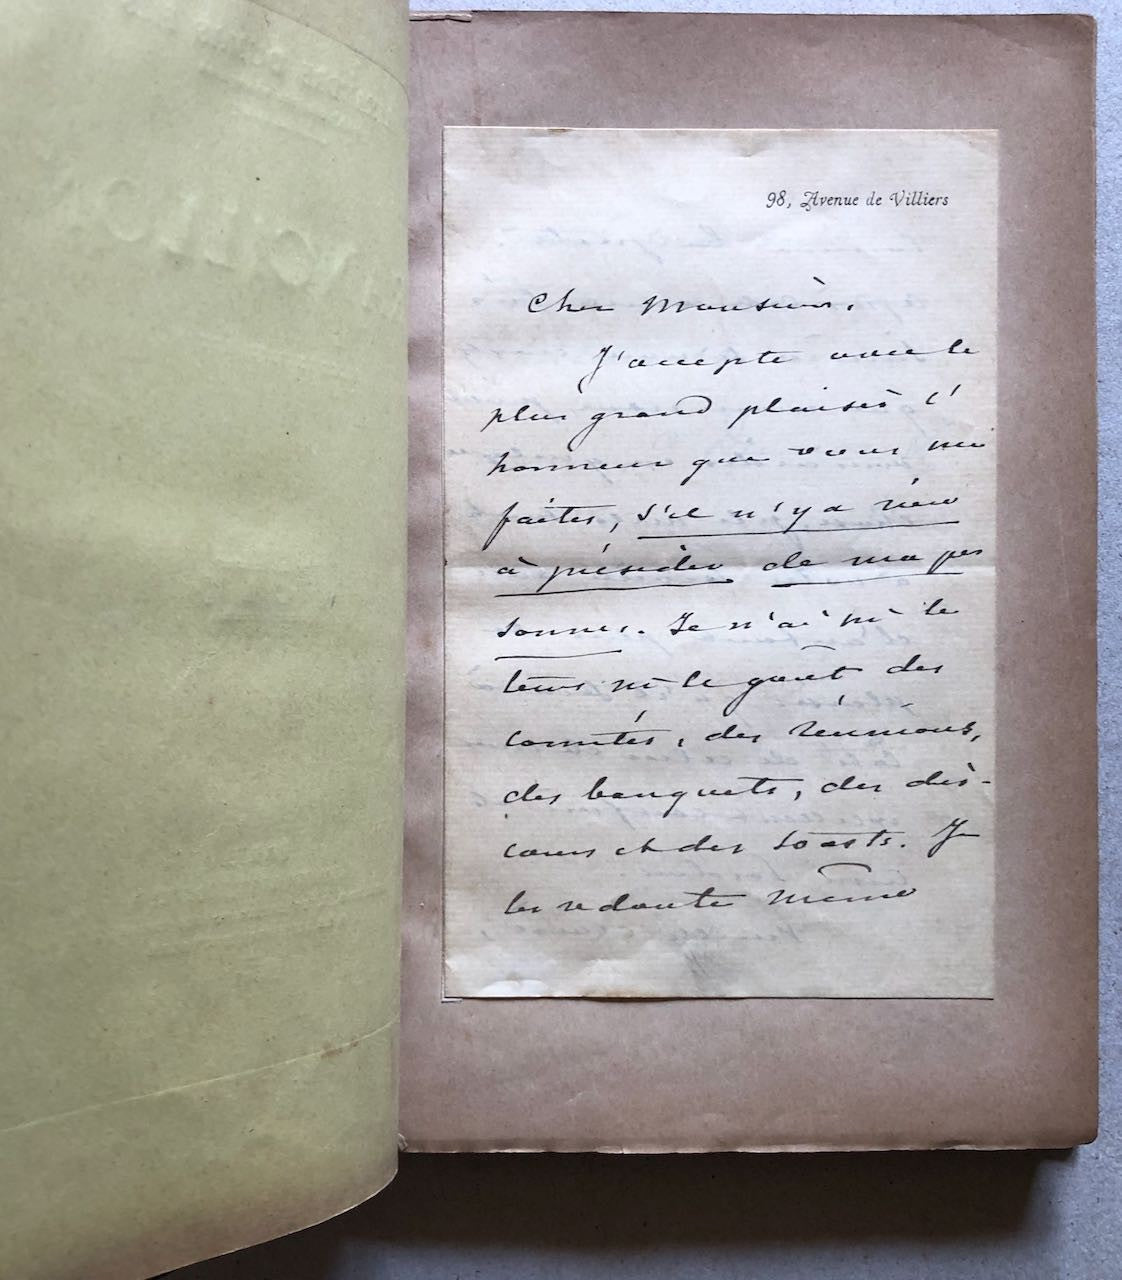 98, Avenue de Villiers
Cher Monsieur,
J'accepte avec le
plus grand plaisir l'
honneur que vous me
faites, s'il n'y a rien
à présider de ma per
sonne. Je n'ai ni le
temps ni le goût des
comités, des réunions,
des banquets, des dis-
cours et des toasts. Je
les redoute même